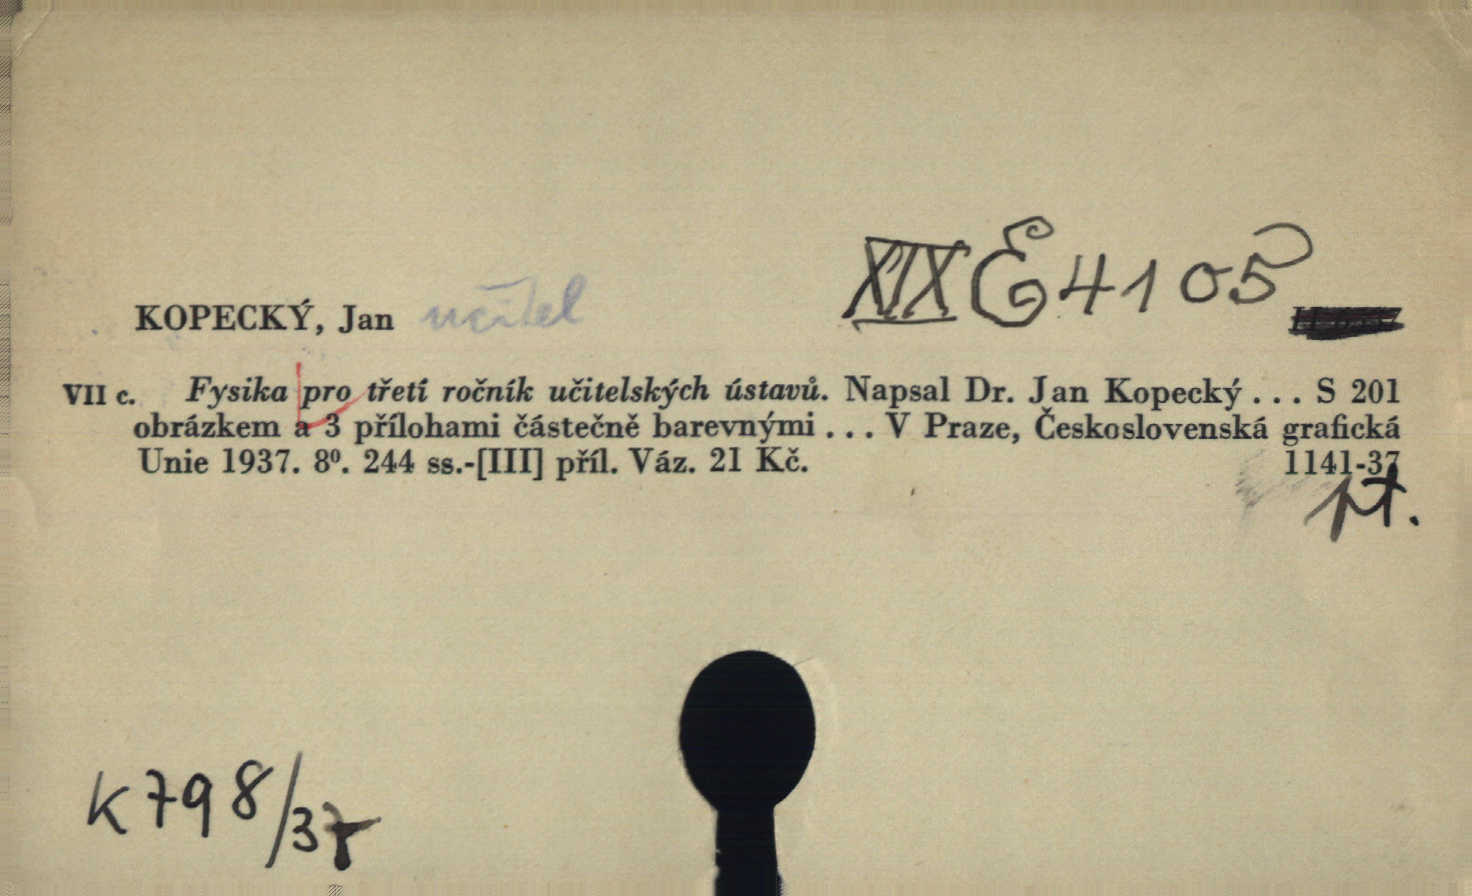 XIX E 4105
KOPECKÝ, Jan učitel
VII c. Fysika pro třetí ročník učitelských ústavů. Napsal Dr. Jan Kopecký... S 201
obrázkem a 3 přílohami částečně barevnými... V Praze, Československá grafická
Unie 1937. 8⁰. 244 ss.-[III] příl. Váz. 21 Kč. 1141-37
pt.
K 798/37